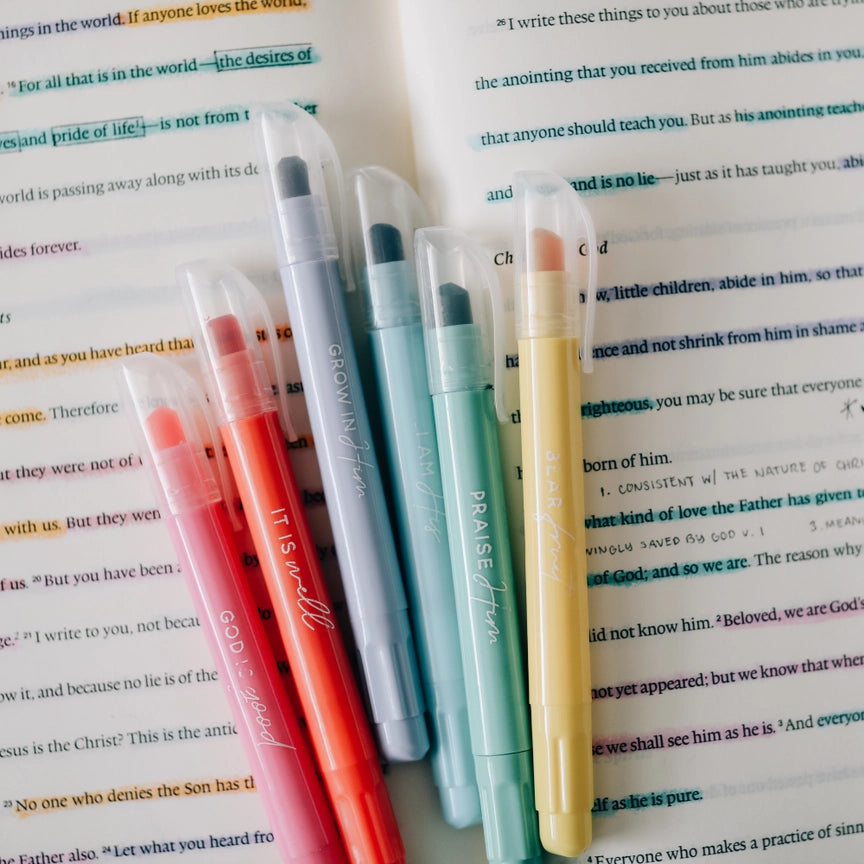 ings in the world. If anyone loves the world,
15 For all that is in the world—the desires of
yes and pride of life—is not from t
world is passing away along with its de
ides forever.
ts
r, and as you have heard tha
come. Therefore
t they were not of
with us. But they wer
f us. 20 But you have been
ge. 21 I write to you, not becau
ow it, and because no lie is of the
esus is the Christ? This is the antic
23 No one who denies the Son has th
he Father also. 24 Let what you heard fro
26 I write these things to you about those who are tryin
the anointing that you received from him abides in you,
that anyone should teach you. But as his anointing teache
and is no lie—just as it has taught you, abi
Ch
od
w, little children, abide in him, so that
ence and not shrink from him in shame a
righteous, you may be sure that everyone
born of him.
1. CONSISTENT W/ THE NATURE OF CHRI
what kind of love the Father has given t
VINGLY SAVED BY GOD V. 1
3. MEAN
of God; and so we are. The reason why
did not know him. 2 Beloved, we are God's
not yet appeared; but we know that when
se we shall see him as he is. 3 And everyon
elf as he is pure.
4 Everyone who makes a practice of sinn
GOD is good
IT IS well
GROW IN Him
I AM His
PRAISE Him
BEAR fruit